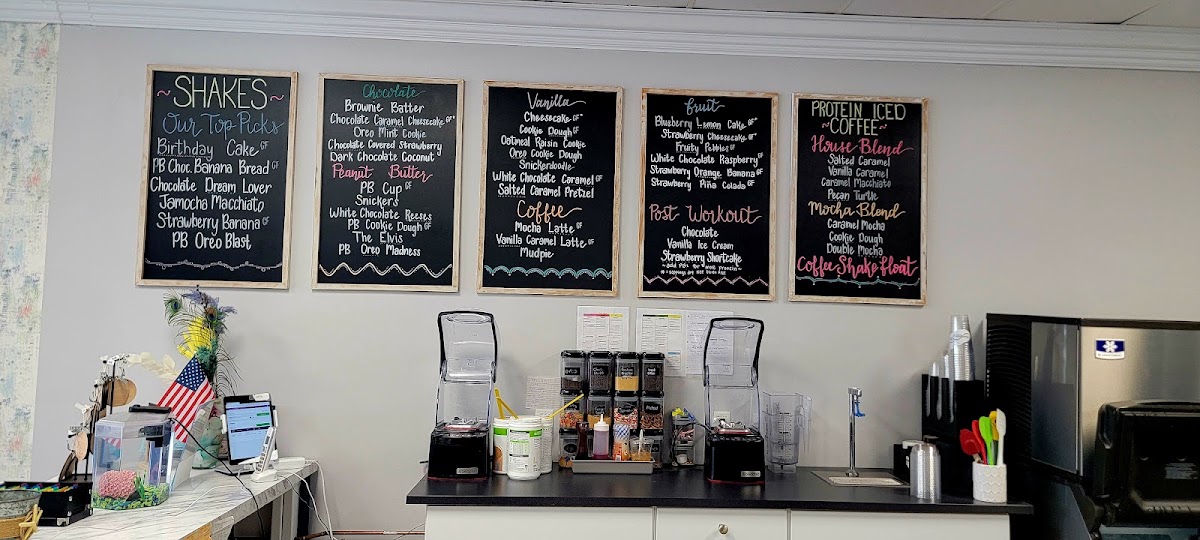 ~SHAKES~
Our Top Picks
Birthday Cake GF
PB Choc. Banana Bread GF
Chocolate Dream Lover
Jamocha Macchiato
Strawberry Banana GF
PB Oreo Blast
Chocolate
Brownie Batter
Chocolate Caramel Cheesecake GF*
Oreo Mint Cookie
Chocolate Covered Strawberry
Dark Chocolate Coconut
Peanut Butter
PB Cup GF
Snickers
White Chocolate Reeses
PB Cookie Dough GF
The Elvis
PB Oreo Madness
Vanilla
Cheesecake GF*
Cookie Dough GF
Oatmeal Raisin Cookie
Oreo Cookie Dough
Snickerdoodle
White Chocolate Caramel GF
Salted Caramel Pretzel
Coffee
Mocha Latte GF
Vanilla Caramel Latte GF
Mudpie
fruit
Blueberry Lemon Cake GF*
Strawberry Cheesecake GF*
Fruity Pebbles GF
White Chocolate Raspberry GF
Strawberry Orange Banana GF
Strawberry Piña Colada GF
Post Workout
Chocolate
Vanilla Ice Cream
Strawberry Shortcake
PROTEIN ICED
~COFFEE~
House Blend
Salted Caramel
Vanilla Caramel
Caramel Macchiato
Pecan Turtle
Mocha Blend
Caramel Mocha
Cookie Dough
Double Mocha
Coffee Shake Float